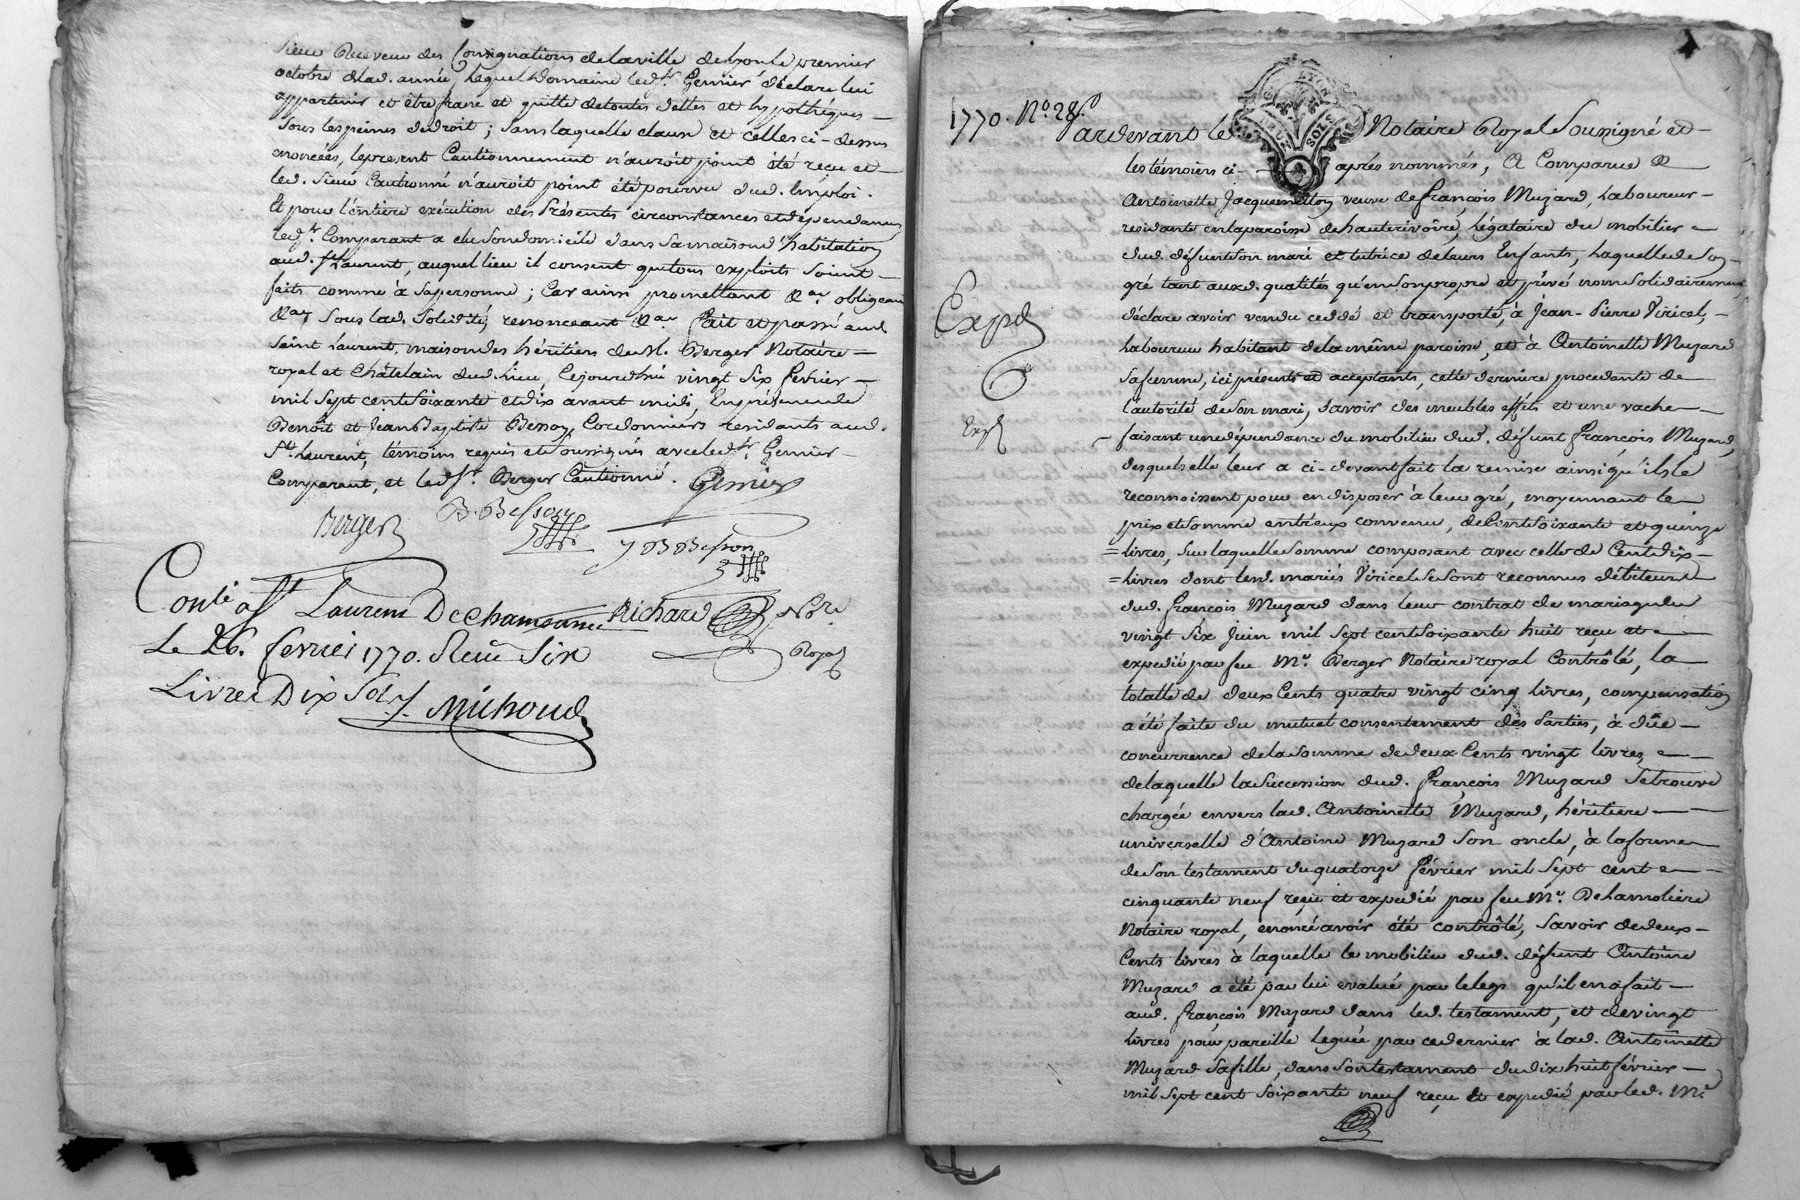 Sieur Receveur des Consignations de la ville de le premier
octobre de lad. année, lequel Domaine led. Sr. Grenier déclare lui
appartenir et être franc et quitte de toutes dettes et hypothéques
sous les peines de droit; sans laquelle clause et celles ci-dessus
énoncées, le présent Cautionnement n'auroit point été reçu et
led. Sieur Cautionné n'auroit point été pourvu dud. Emploi.
Et pour l'entiere exécution des Présentes circonstances et dépendances
led. Sr. Comparant a elu son domicile dans sa maison d'habitation
aud. St. Laurent, auquel lieu il consent que tous exploits soient
faits comme à sa personne; Car ainsi promettant &a. obligeant
&a. sous lad. solidité, renonceant &a. fait et passé aud.
Saint Laurent, maison des héritiers de M. Berger Notaire
royal et Châtelain dud. Lieu, Cejourd'hui vingt six février
mil sept cent soixante et dix avant midi, En présence de
Benoit et Jean Baptiste Besson Cordonniers residants aud.
St. Laurent, témoins requis et soussignés avec led. Sr. Grenier
Comparant, et led. Sr. Berger Cautionné. Grenier
Berger B. Besson
J B Besson
Conlé a St Laurent De Chamousset Richard Nore.
Le 26. fevrier 1770. Reçu Six Royal
Livres Dix Sols. Michoud
1770. No. 28.
Pardevant le Notaire Royal Soussigné et
les témoins ci-après nommés, A Comparue
Antoinette Jacquemetton veuve de françois Muzard, Laboureur
residante en la paroisse de hauterivoire, légataire du mobilier
dud. défunt son mari et tutrice de leurs Enfants, Laquelle de son
gré tant auxd. qualités qu'en son propre et privé nom solidairement,
déclare avoir vendu ceddé et transporté, à Jean-Pierre Viricel,
Laboureur habitant de la même paroisse, et à Antoinette Muzard
sa femme, ici présents et acceptants, cette derniere procedante de
l'autorité de son mari, savoir des meubles effets et une vache
faisant une dépendance du mobilier dud. défunt françois Muzard,
desquels elle leur a ci-devant fait la remise ainsi qu'ils le
reconnoissent pour en disposer à leur gré, moyennant le
prix et somme entr'eux convenu, de Cent soixante et quinze
livres, sur laquelle somme composant avec celle de Cent dix
livres dont lesd. mariés Viricel se sont reconnus débiteurs
dud. françois Muzard dans leur contrat de mariage du
vingt six Juin mil sept cent soixante huit reçu et
expedié par feu Me. Berger Notaire royal Contrôlé, la
totalle de deux Cents quatre vingt cinq livres, compensation
a été faite du mutuel consentement des Parties, à düe
concurrence de la somme de deux Cents vingt livres,
de laquelle la succession dud. françois Muzard se trouve
chargée envers lad. Antoinette Muzard, héritiere
universelle d'Antoine Muzard son oncle, à la forme
de son testament du quatorze février mil sept cent
cinquante neuf reçu et expedié par feu Me. Delamoliere
Notaire royal, énoncé avoir été contrôlé, savoir de deux
Cents livres à laquelle le mobilier dud. défunt Antoine
Muzard a été par lui evalué par le legs qu'il en a fait
aud. françois Muzard dans led. testament, et de vingt
livres pour pareille leguée par ce dernier à lad. Antoinette
Muzard sa fille, dans son testament du dix huit février
mil sept cent soixante neuf reçu et expedié par led. Me
Expd
Expd